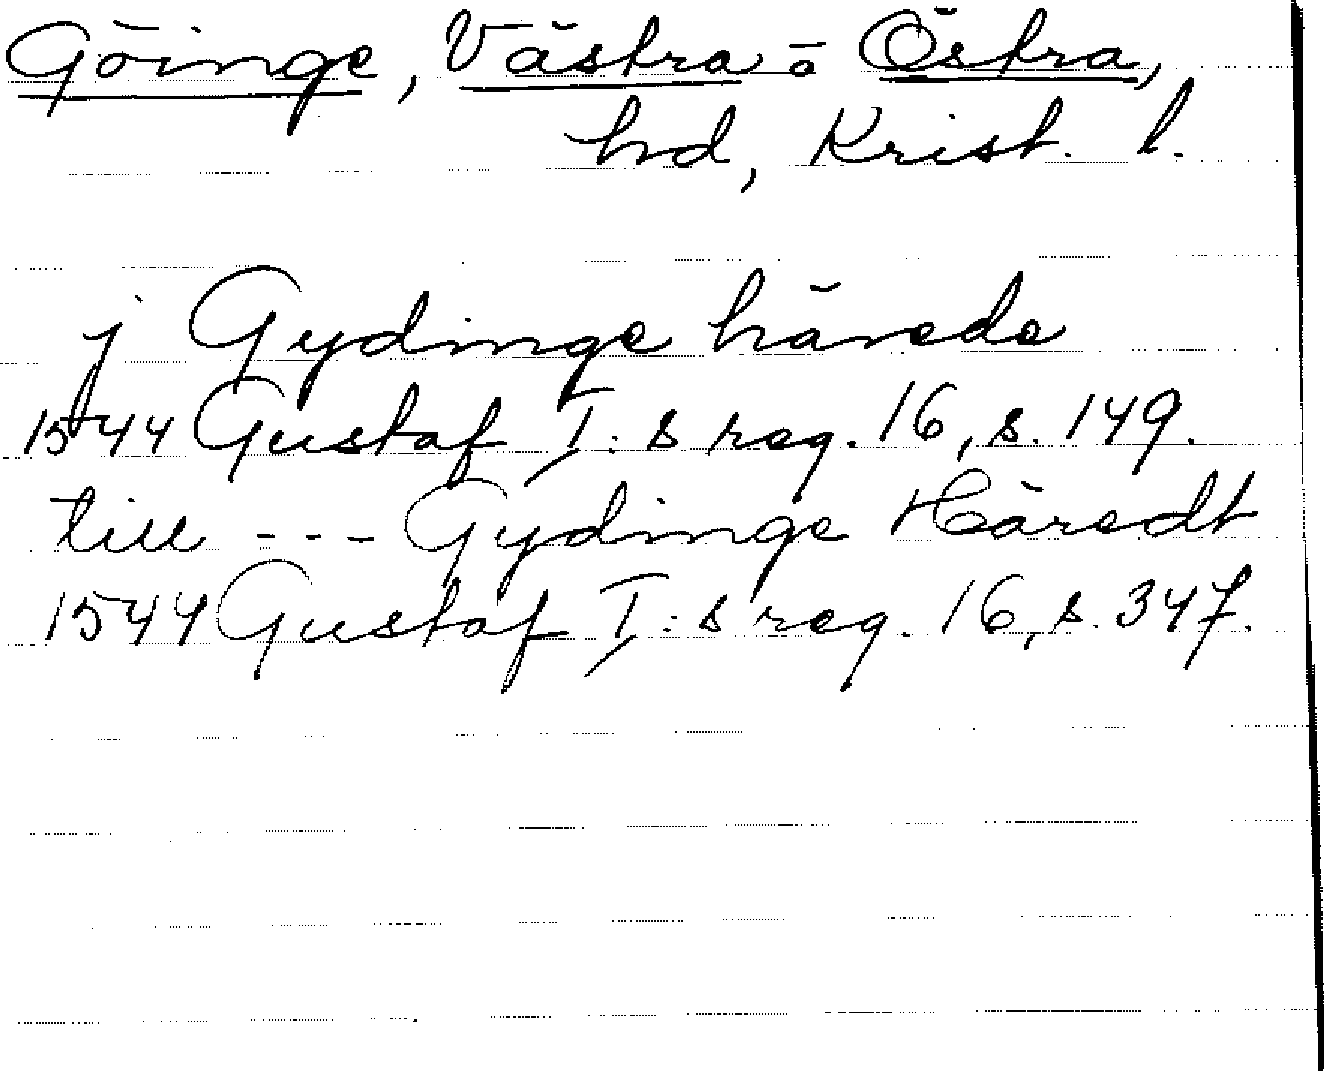 Göinge, Västra o Östra,
hd, Krist. l.
j Gydinge härede
1544 Gustaf I:s reg. 16, s. 149.
till --- Gydinge Häredt
1544 Gustaf I:s reg. 16, s. 347.